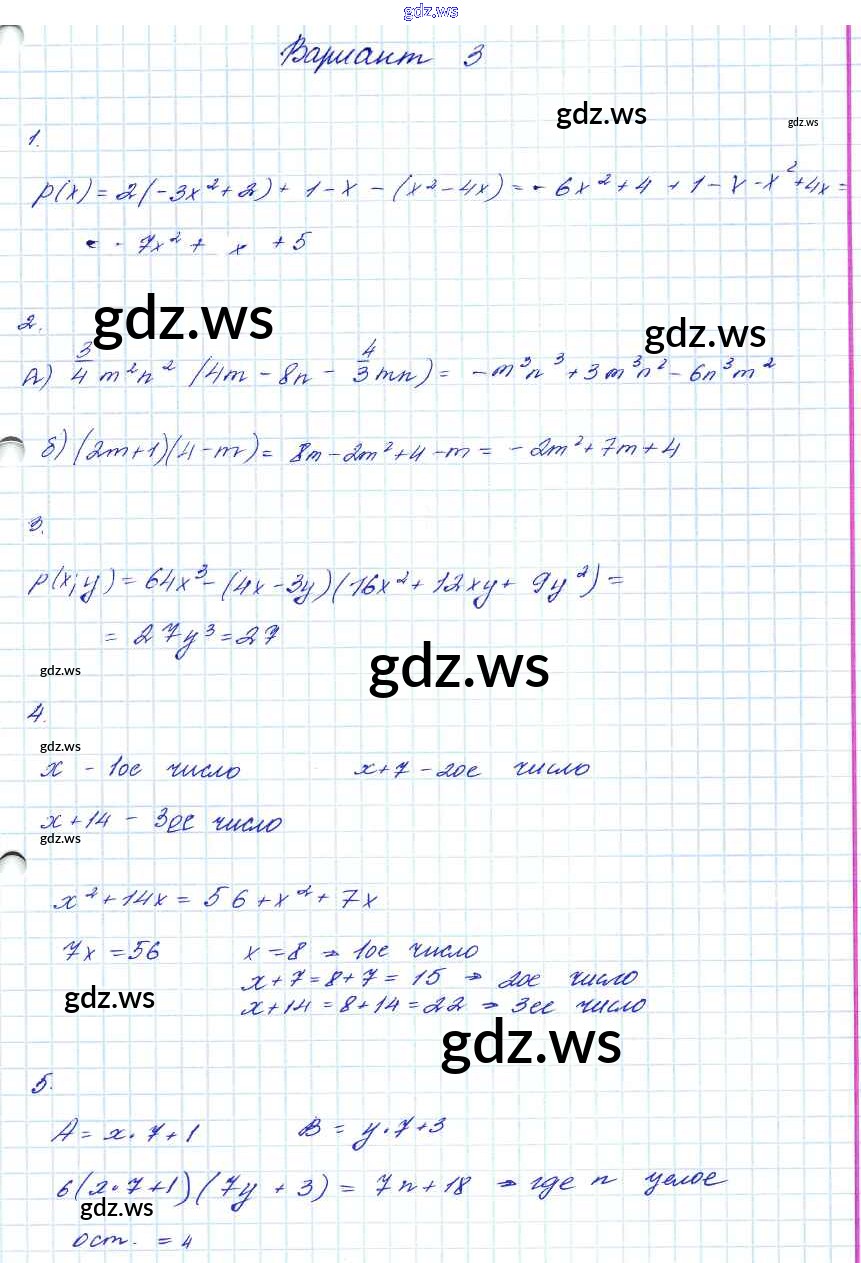 gdz.ws
Вариант 3
gdz.ws gdz.ws
1.
p(x) = 2(-3x² + 2) + 1 - x - (x² - 4x) = - 6x² + 4 + 1 - x - x² + 4x =
= - 7x² + x + 5
2.
gdz.ws gdz.ws
А) 3/4 m²n² (4m - 8n - 4/3 mn) = - m³n³ + 3m³n² - 6n³m²
б) (2m+1)(4-m) = 8m - 2m² + 4 - m = - 2m² + 7m + 4
3.
p(x;y) = 64x³ - (4x - 3y)(16x² + 12xy + 9y²) =
= 27y³ = 27
gdz.ws gdz.ws
4.
gdz.ws
x - 1ое число x+7 - 2ое число
x+14 - 3ее число
gdz.ws
x² + 14x = 56 + x² + 7x
7x = 56 x = 8 → 1ое число
x+7 = 8+7 = 15 → 2ое число
gdz.ws x+14 = 8+14 = 22 → 3ее число
gdz.ws
5.
A = x·7+1 B = y·7+3
6(x·7+1)(7y + 3) = 7n+18 → где n целое
gdz.ws
ост. = 4